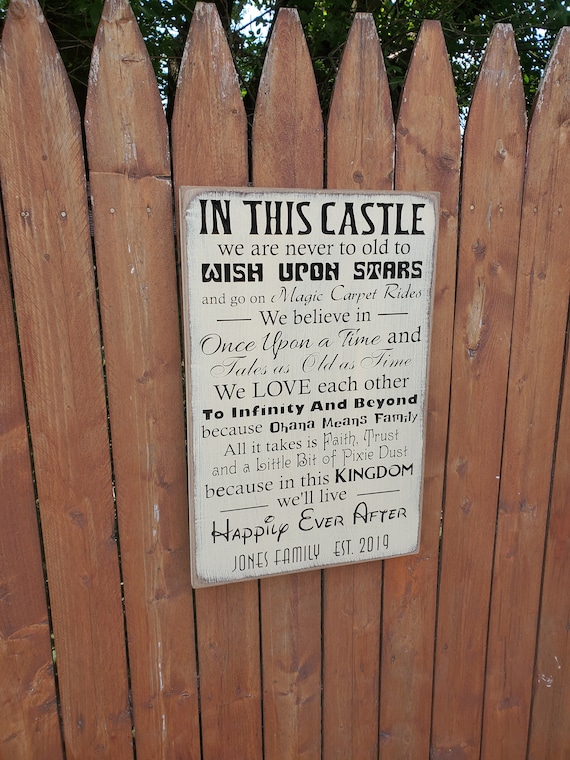 IN THIS CASTLE
we are never to old to
WISH UPON STARS
and go on Magic Carpet Rides
We believe in
Once Upon a Time and
Tales as Old as Time
We LOVE each other
To Infinity And Beyond
because Ohana Means Family
All it takes is Faith, Trust
and a Little Bit of Pixie Dust
because in this KINGDOM
we'll live
Happily Ever After
JONES FAMILY EST. 2019